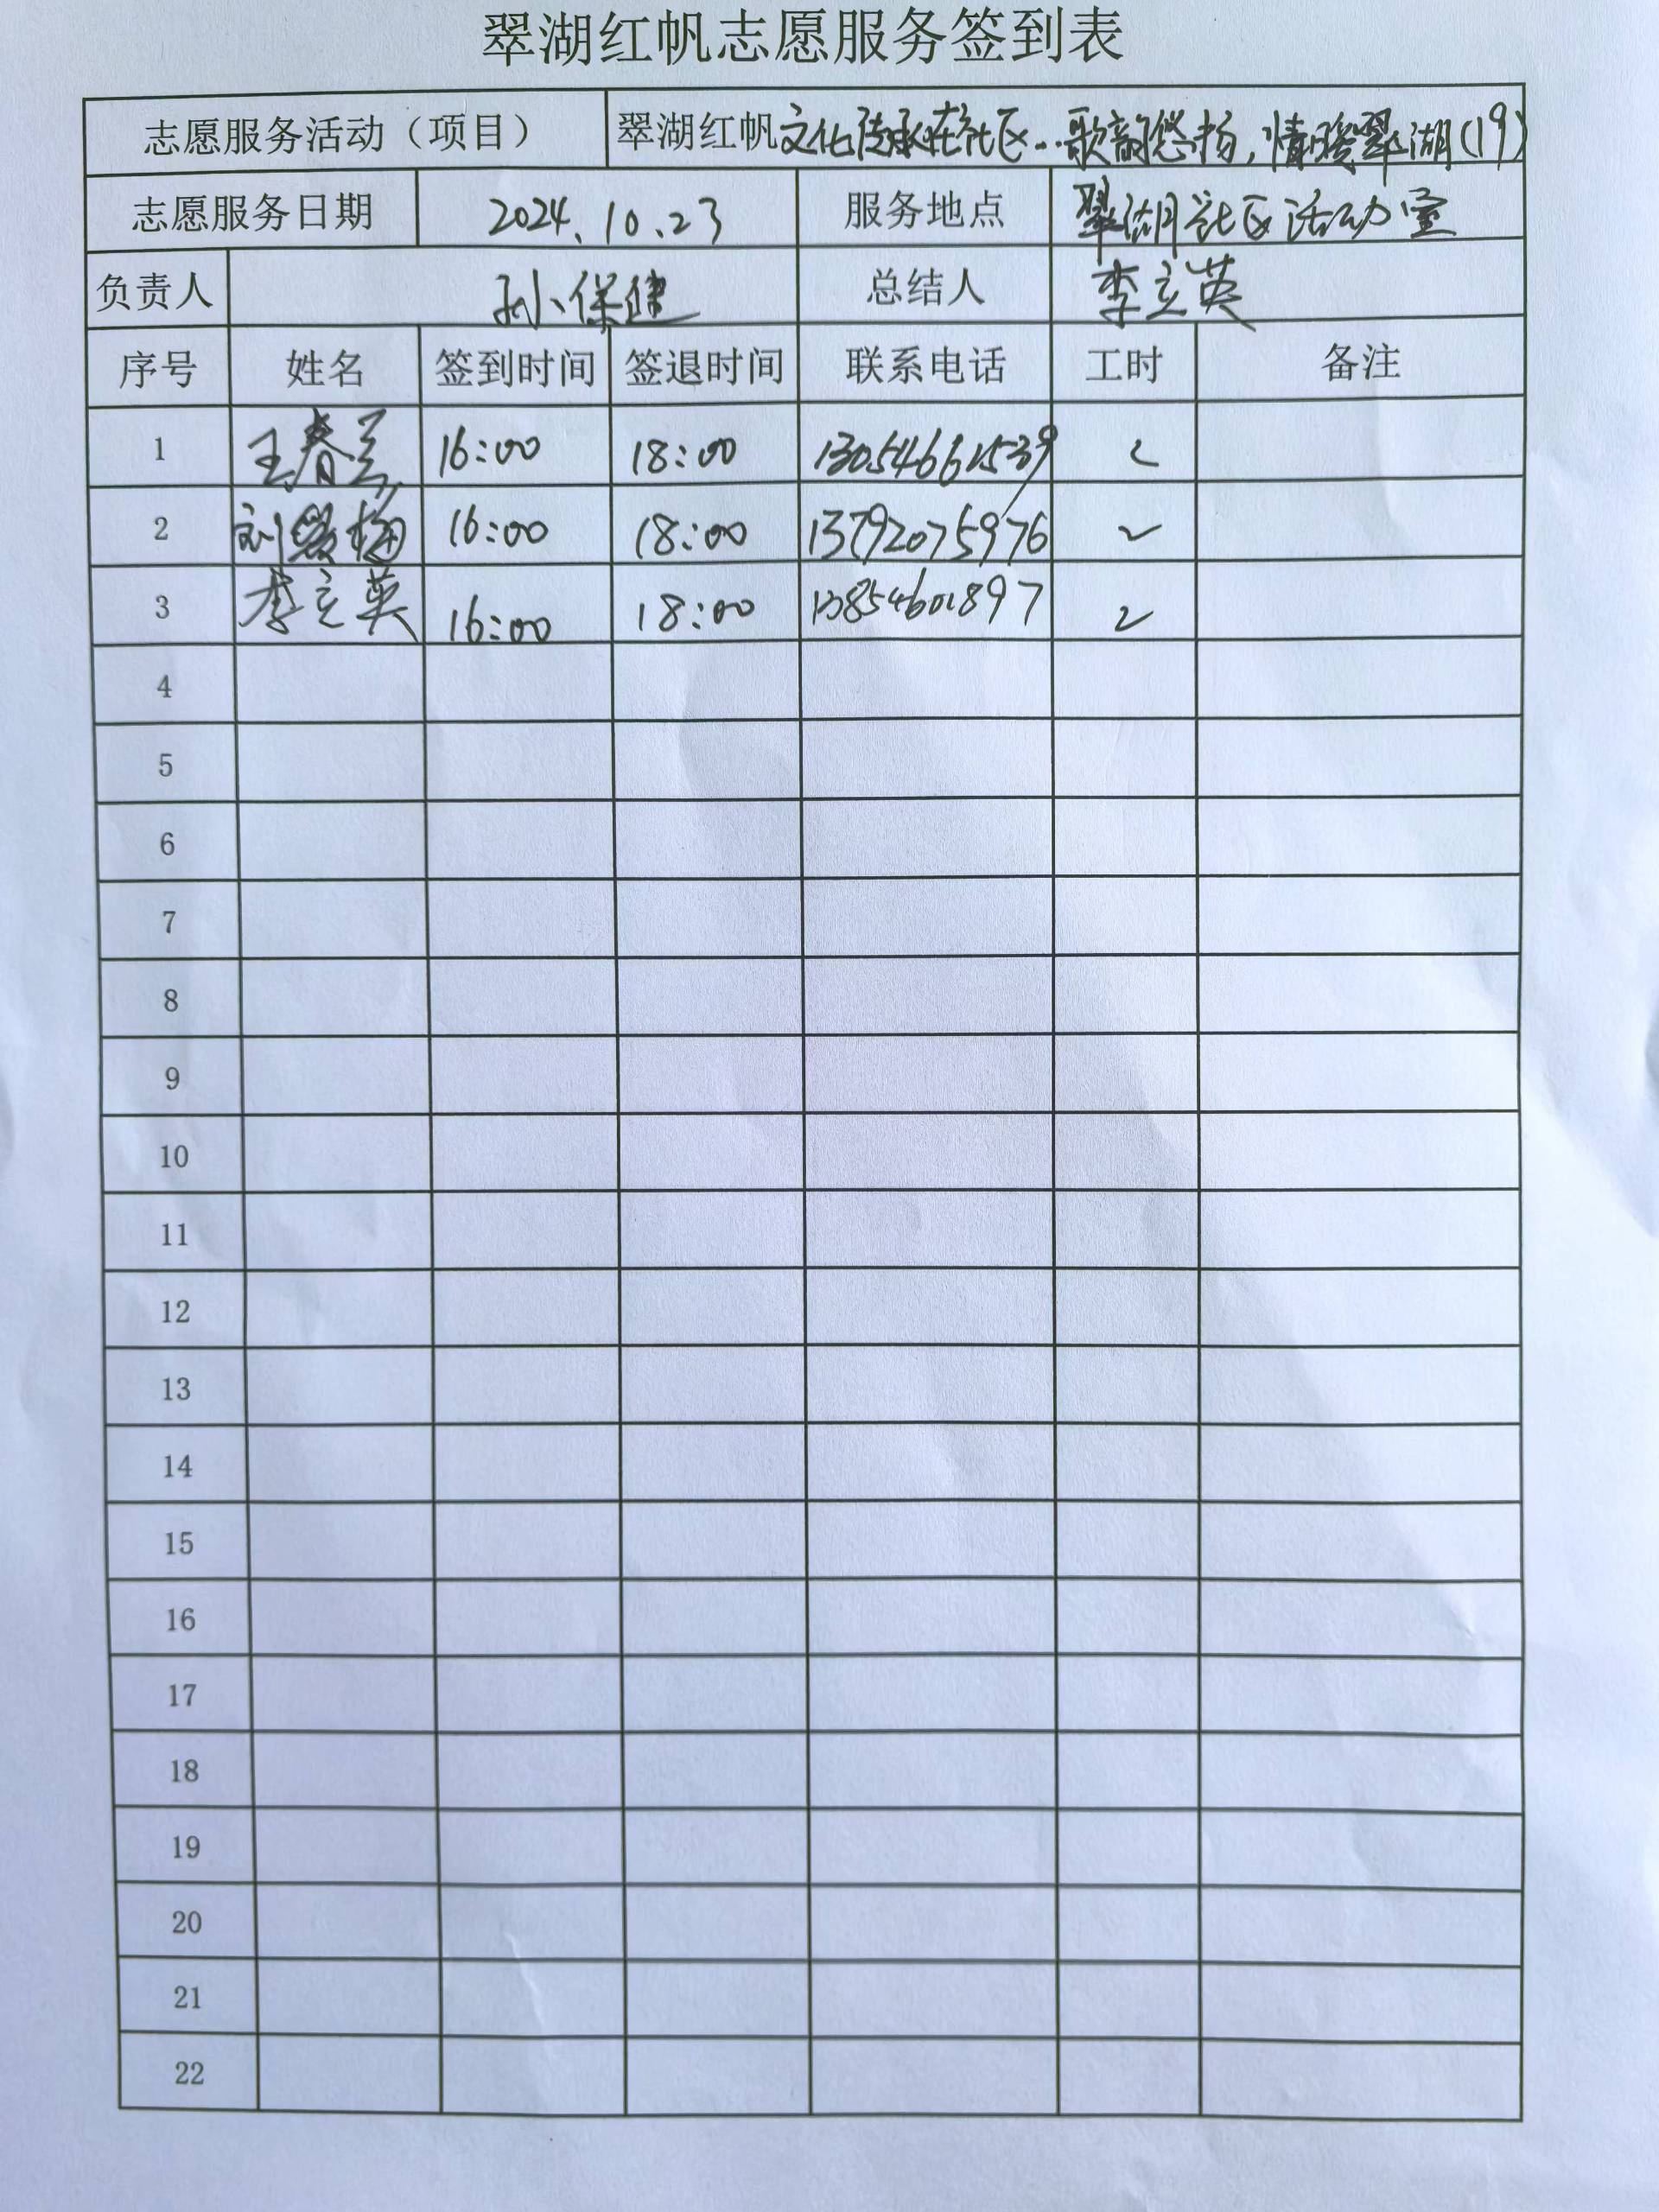 翠湖红帆志愿服务签到表
志愿服务活动（项目） 翠湖红帆文化传承在社区..歌韵悠扬,情暖翠湖(19)
志愿服务日期 2024.10.23 服务地点 翠湖社区活动室
负责人 孙保健 总结人 李立英
序号 姓名 签到时间 签退时间 联系电话 工时 备注
1 王春兰 16:00 18:00 13054661539 2
2 刘 梅 16:00 18:00 13792075976 2
3 李立英 16:00 18:00 13854601897 2
4
5
6
7
8
9
10
11
12
13
14
15
16
17
18
19
20
21
22